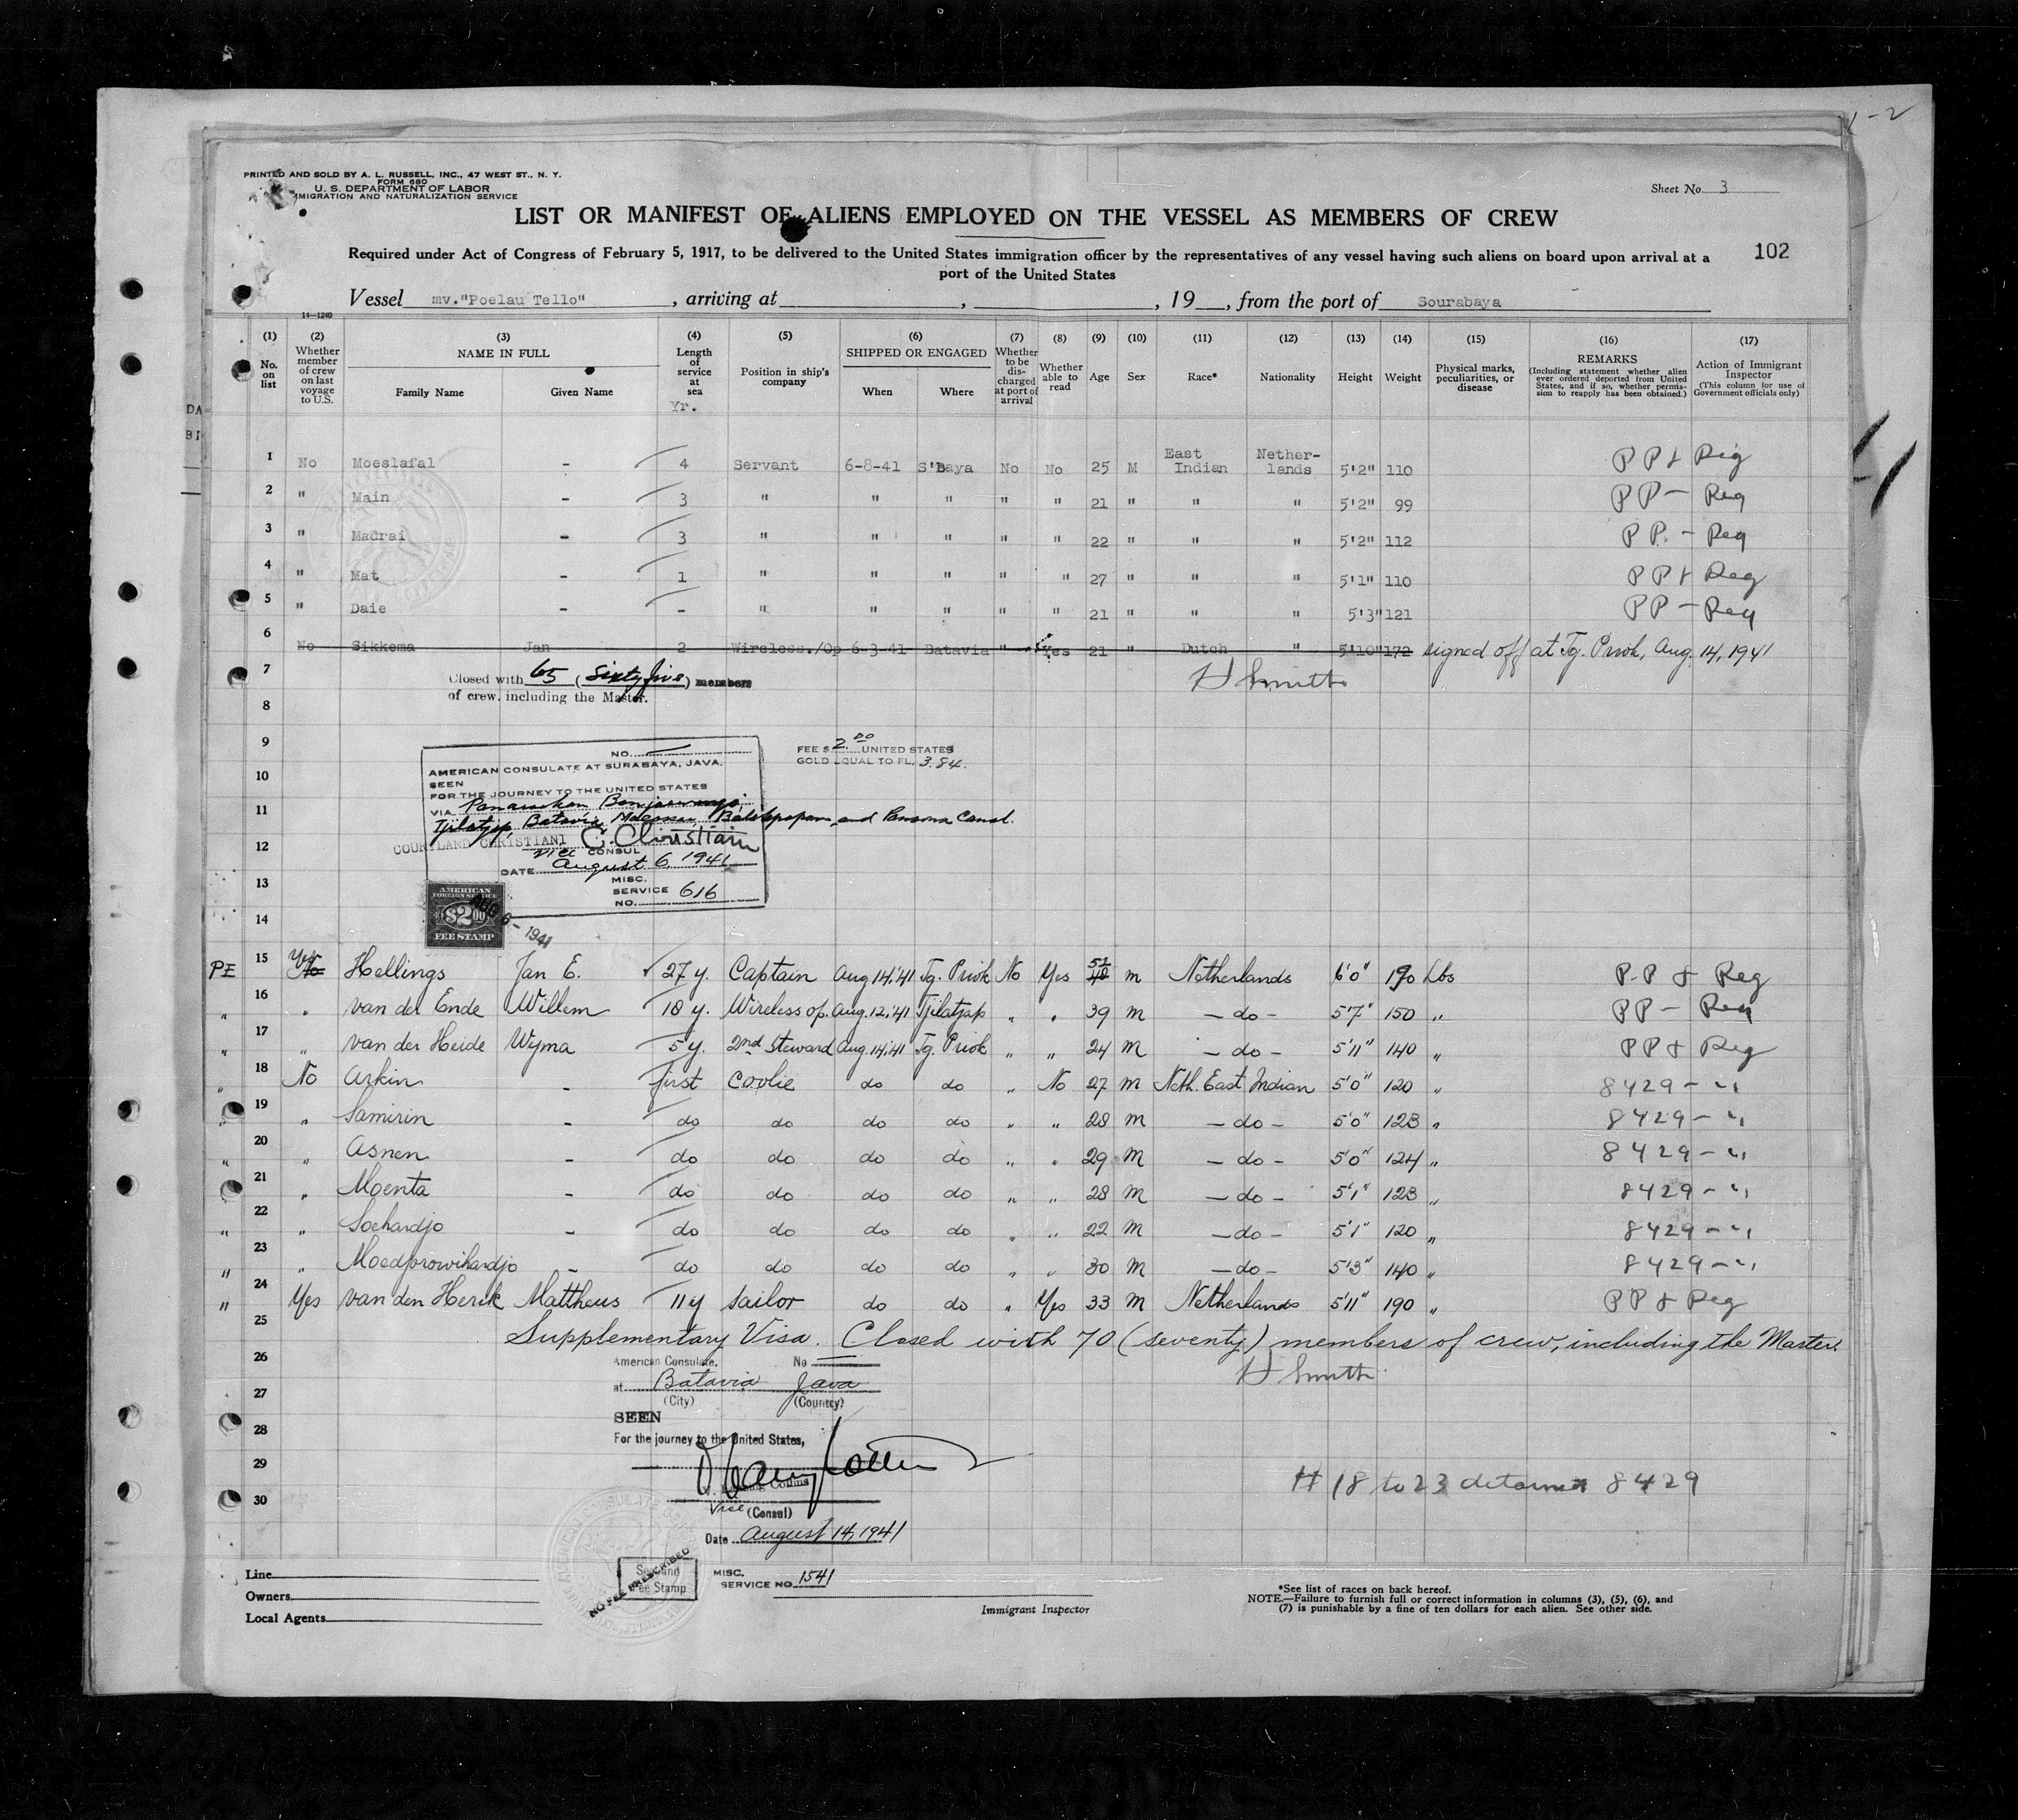 1-2
PRINTED AND SOLD BY A. L. RUSSELL, INC., 47 WEST ST., N. Y.
FORM 680
U. S. DEPARTMENT OF LABOR
IMMIGRATION AND NATURALIZATION SERVICE
Sheet No. 3
LIST OR MANIFEST OF ALIENS EMPLOYED ON THE VESSEL AS MEMBERS OF CREW
102
Required under Act of Congress of February 5, 1917, to be delivered to the United States immigration officer by the representatives of any vessel having such aliens on board upon arrival at a
port of the United States
Vessel mv."Poelau Tello", arriving at , , 19 , from the port of Sourabaya
14—1240
(1) (2) (3) (4) (5) (6) (7) (8) (9) (10) (11) (12) (13) (14) (15) (16) (17)
No. on list
Whether member of crew on last voyage to U.S.
NAME IN FULL
Family Name Given Name
Length of service at sea
Yr.
Position in ship's company
SHIPPED OR ENGAGED
When Where
Whether to be discharged at port of arrival
Whether able to read
Age Sex Race* Nationality Height Weight
Physical marks, peculiarities, or disease
REMARKS
(Including statement whether alien ever ordered deported from United States, and if so, whether permission to reapply has been obtained.)
Action of Immigrant Inspector
(This column for use of Government officials only)
DA
BI
1 No Moeslafal - 4 Servant 6-8-41 S'baya No No 25 M East Indian Netherlands 5'2" 110 PP & Reg
2 " Main - 3 " " " " " 21 " " " 5'2" 99 PP - Reg
3 " Madrai - 3 " " " " " 22 " " " 5'2" 112 PP. - Reg
4 " Mat - 1 " " " " " 27 " " " 5'1" 110 PP & Reg
5 " Daie - - " " " " " 21 " " " 5'3" 121 PP - Reg
6 No Sikkema Jan 2 Wireless./Op 6-3-41 Batavia " Yes 21 " Dutch " 5'10" 172 signed off at Tg. Priok, Aug. 14, 1941
7 Closed with 65 (Sixty five) members
of crew, including the Master.
H Smith
8
9
10
11
12
13
14
NO.
AMERICAN CONSULATE AT SURABAYA, JAVA.
SEEN
FOR THE JOURNEY TO THE UNITED STATES
VIA Panaroekan Banjoewangi,
Tjilatjap, Batavia, Macassar, Balikpapan, and Panama Canal.
COURTLAND CHRISTIANI C. Christiani
Vice CONSUL
DATE August 6, 1941
MISC.
SERVICE 616
NO.
FEE $ 2.00 UNITED STATES
GOLD EQUAL TO FL. 3.84.
AMERICAN
FOREIGN SERVICE
$2.00
FEE STAMP
AUG 6 - 1941
PE 15 Yes No Hellings Jan E. 27 y. Captain Aug 14,'41 Tg. Priok No Yes 52 48 m Netherlands 6'0" 190 Lbs P.P & Reg
" 16 " van der Ende Willem 18 y. Wireless op. Aug. 12,'41 Tjilatjap " " 39 m — do — 5'7" 150 " PP - Reg
" 17 " van der Heide Wijma 5 y. 2nd Steward Aug. 14,'41 Tg. Priok " " 24 m — do — 5'11" 140 " PP & Reg
" 18 No Arkin - first coolie do do " No 27 m Neth. East Indian 5'0" 120 " 8429 - "
19 " Samirin - do do do do " " 28 m — do — 5'0" 123 " 8429 - "
" 20 " Asnen - do do do do " " 29 m — do — 5'0" 124 " 8429 - "
21 " Moenta - do do do do " " 28 m — do — 5'1" 123 " 8429 - "
" 22 " Soehardjo - do do do do " " 22 m — do — 5'1" 120 " 8429 - "
" 23 " Moedprowihardjo - do do do do " " 30 m — do — 5'3" 140 " 8429 - "
" 24 Yes van den Herik Mattheus 11 y sailor do do " Yes 33 m Netherlands 5'11" 190 " PP & Reg
25 Supplementary Visa. Closed with 70 (seventy) members of crew, including the Master.
H Smith
26
27
28
29
30
American Consulate. No
at Batavia Java
(City) (Country)
SEEN
For the journey to the United States,
Collins
Vice (Consul)
Date August 14, 1941
MISC.
SERVICE NO. 1541
Fee Stamp
NO FEE PRESCRIBED
# 18 to 23 detained 8429
Line
Owners
Local Agents
Immigrant Inspector
*See list of races on back hereof.
NOTE.—Failure to furnish full or correct information in columns (3), (5), (6), and
(7) is punishable by a fine of ten dollars for each alien. See other side.